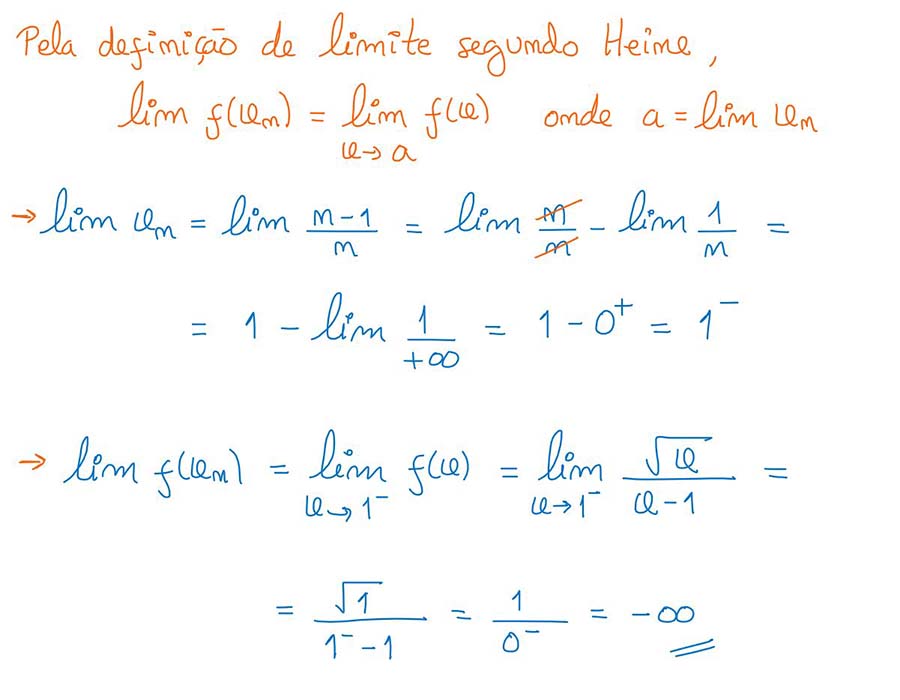 Pela definição de limite segundo Heine,
lim f(xₙ) = lim f(x) onde a = lim xₙ
x→a
→ lim xₙ = lim (n-1)/n = lim n/n - lim 1/n =
= 1 - lim 1/+∞ = 1 - 0⁺ = 1⁻
→ lim f(xₙ) = lim f(x) = lim √x/(x-1) =
x→1⁻ x→1⁻
= √1/(1⁻-1) = 1/0⁻ = -∞